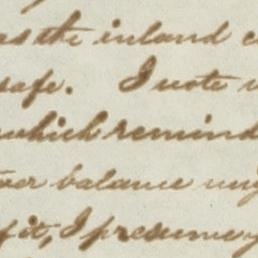 as the inland c
safe. I note
which remind
over balance my
f it, I presume y